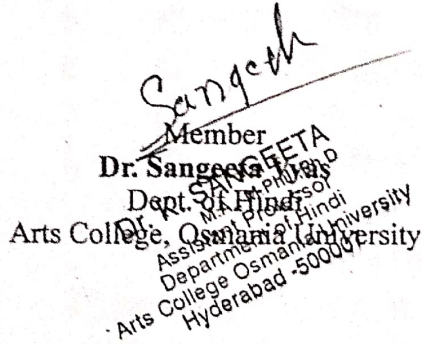 Sangeeth
Member
Dr. Sangeeta Vyas
Dept. of Hindi
Arts College, Osmania University
Dr. K. SANGEETA
M.A., M.Phil, Ph.D
Assistant Professor
Department of Hindi
Arts College Osmania University
Hyderabad -500007